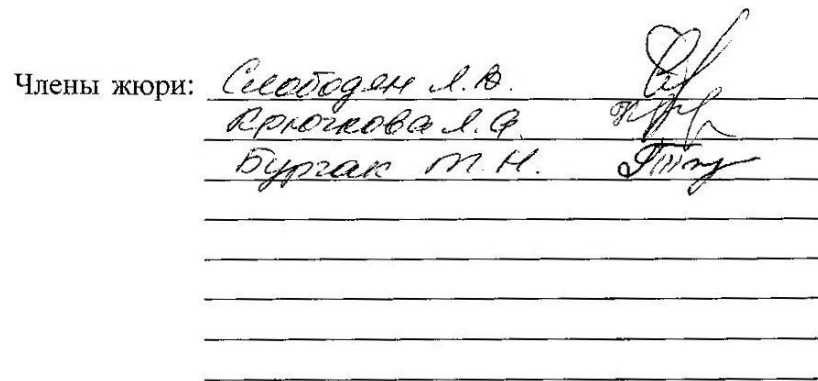 Члены жюри: Слободян Л.В.
Крючкова Л.Ф.
Бургак М.Н.